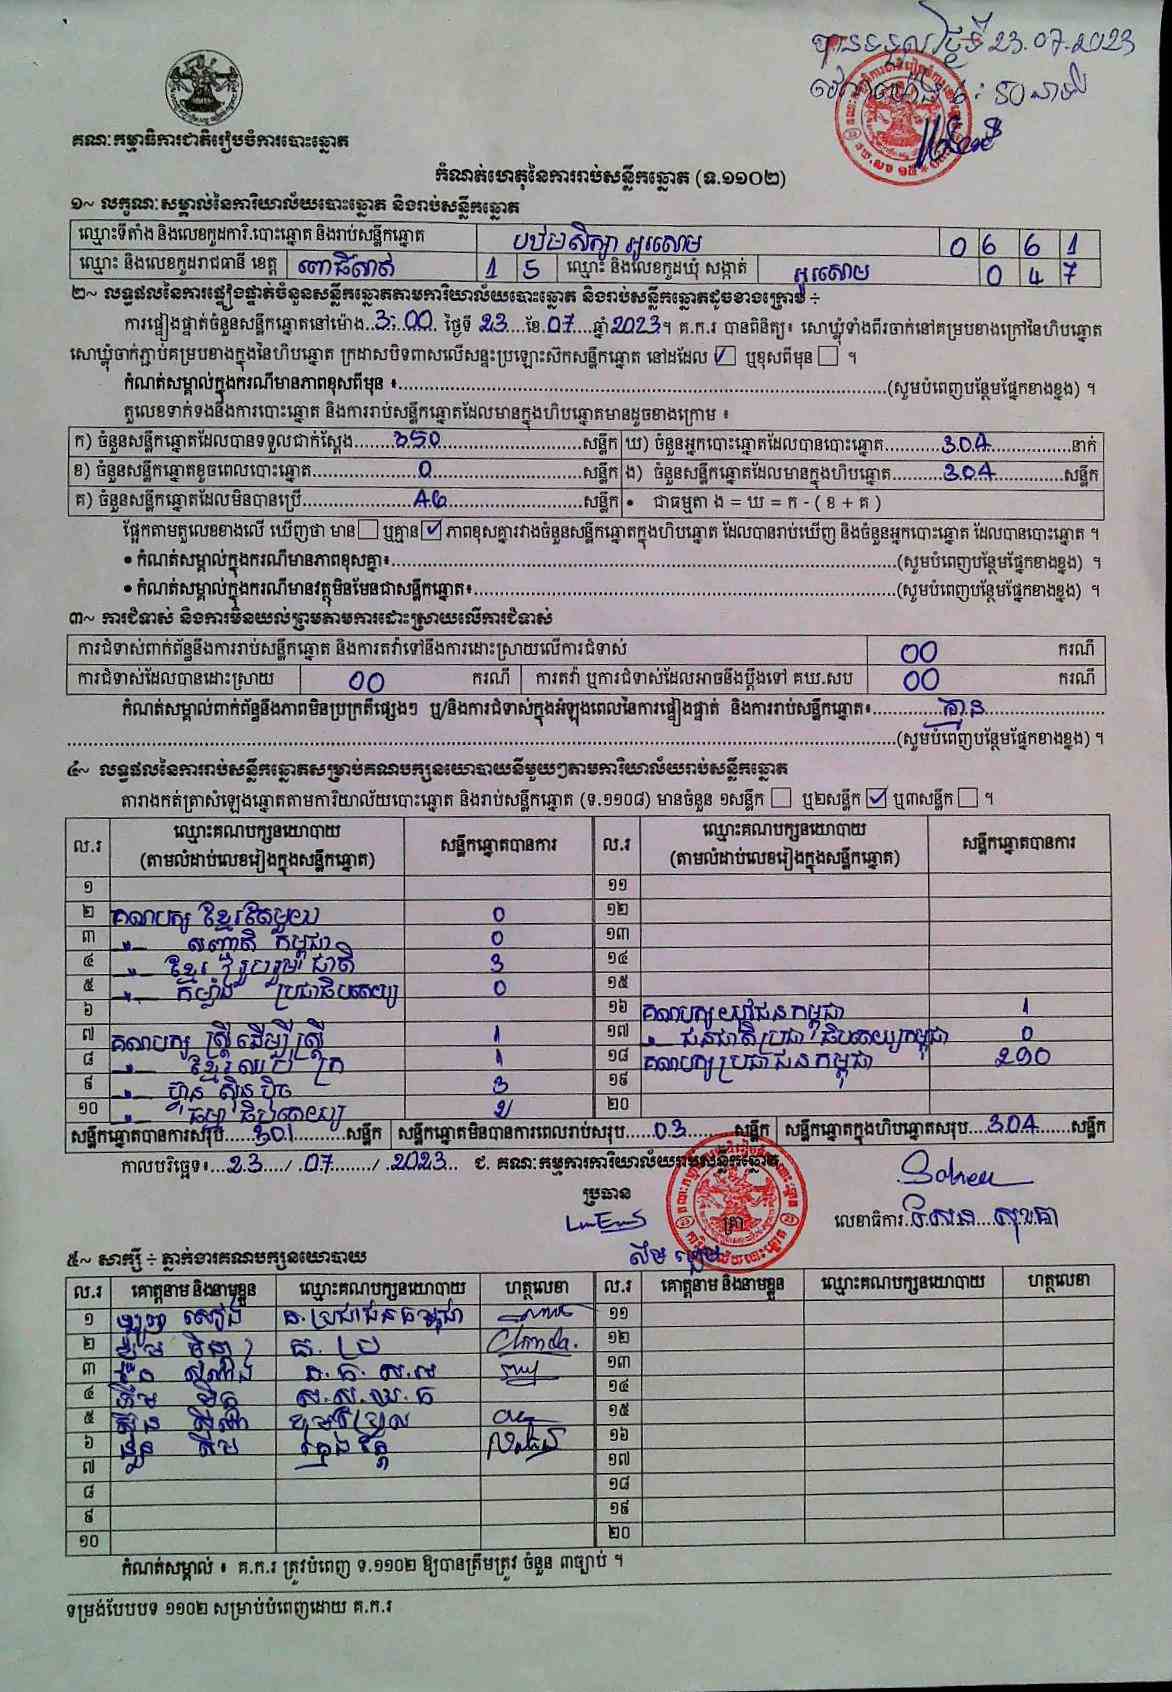 បានទទួលថ្ងៃទី 23.07.2023
គណៈកម្មាធិការជាតិរៀបចំការបោះឆ្នោត
កំណត់ហេតុនៃការរាប់សន្លឹកឆ្នោត (ទ.១១០២)
១~ លក្ខណៈសម្គាល់នៃការិយាល័យបោះឆ្នោត និងរាប់សន្លឹកឆ្នោត
ឈ្មោះទីតាំង និងលេខកូដការិ.បោះឆ្នោត និងរាប់សន្លឹកឆ្នោត បឋមសិក្សា អូរសោម 0 6 6 1
ឈ្មោះ និងលេខកូដរាជធានី ខេត្ត ពោធិ៍សាត់ 1 5 ឈ្មោះ និងលេខកូដឃុំ សង្កាត់ អូរសោម 0 4 7
២~ លទ្ធផលនៃការផ្ទៀងផ្ទាត់ចំនួនសន្លឹកឆ្នោតតាមការិយាល័យបោះឆ្នោត និងរាប់សន្លឹកឆ្នោតដូចខាងក្រោម ÷
ការផ្ទៀងផ្ទាត់ចំនួនសន្លឹកឆ្នោតនៅម៉ោង 3:00 ថ្ងៃទី 23 ខែ 07 ឆ្នាំ 2023។ គ.ក.រ បានពិនិត្យ៖ សោឃ្លុំទាំងពីរចាក់នៅគម្របខាងក្រៅនៃហិបឆ្នោត
សោឃ្លុំចាក់ភ្ជាប់គម្របខាងក្នុងនៃហិបឆ្នោត ក្រដាសបិទពាសលើសន្ទះប្រឡោះស៊កសន្លឹកឆ្នោត នៅដដែល ☑ ឬខុសពីមុន ☐ ។
កំណត់សម្គាល់ក្នុងករណីមានភាពខុសពីមុន ៖ (សូមបំពេញបន្ថែមផ្នែកខាងខ្នង) ។
តួលេខទាក់ទងនឹងការបោះឆ្នោត និងការរាប់សន្លឹកឆ្នោតដែលមានក្នុងហិបឆ្នោតមានដូចខាងក្រោម ៖
ក) ចំនួនសន្លឹកឆ្នោតដែលបានទទួលជាក់ស្តែង 350 សន្លឹក ឃ) ចំនួនអ្នកបោះឆ្នោតដែលបានបោះឆ្នោត 304 នាក់
ខ) ចំនួនសន្លឹកឆ្នោតខូចពេលបោះឆ្នោត 0 សន្លឹក ង) ចំនួនសន្លឹកឆ្នោតដែលមានក្នុងហិបឆ្នោត 304 សន្លឹក
គ) ចំនួនសន្លឹកឆ្នោតដែលមិនបានប្រើ 46 សន្លឹក • ជាធម្មតា ង = ឃ = ក - ( ខ + គ )
ផ្អែកតាមតួលេខខាងលើ ឃើញថា មាន ☐ ឬគ្មាន ☑ ភាពខុសគ្នារវាងចំនួនសន្លឹកឆ្នោតក្នុងហិបឆ្នោត ដែលបានរាប់ឃើញ និងចំនួនអ្នកបោះឆ្នោត ដែលបានបោះឆ្នោត ។
• កំណត់សម្គាល់ក្នុងករណីមានភាពខុសគ្នា៖ (សូមបំពេញបន្ថែមផ្នែកខាងខ្នង) ។
• កំណត់សម្គាល់ក្នុងករណីមានវត្ថុមិនមែនជាសន្លឹកឆ្នោត៖ (សូមបំពេញបន្ថែមផ្នែកខាងខ្នង) ។
៣~ ការជំទាស់ និងការមិនយល់ព្រមតាមការដោះស្រាយលើការជំទាស់
ការជំទាស់ពាក់ព័ន្ធនឹងការរាប់សន្លឹកឆ្នោត និងការតវ៉ាទៅនឹងការដោះស្រាយលើការជំទាស់ 00 ករណី
ការជំទាស់ដែលបានដោះស្រាយ 00 ករណី ការតវ៉ា ឬការជំទាស់ដែលអាចនឹងប្តឹងទៅ គឃ.សប 00 ករណី
កំណត់សម្គាល់ពាក់ព័ន្ធនឹងភាពមិនប្រក្រតីផ្សេងៗ ឬ/និងការជំទាស់ក្នុងអំឡុងពេលនៃការផ្ទៀងផ្ទាត់ និងការរាប់សន្លឹកឆ្នោត៖ គ្មាន
(សូមបំពេញបន្ថែមផ្នែកខាងខ្នង) ។
៤~ លទ្ធផលនៃការរាប់សន្លឹកឆ្នោតសម្រាប់គណបក្សនយោបាយនីមួយៗតាមការិយាល័យរាប់សន្លឹកឆ្នោត
តារាងកត់ត្រាសំឡេងឆ្នោតតាមការិយាល័យបោះឆ្នោត និងរាប់សន្លឹកឆ្នោត (ទ.១១០៨) មានចំនួន ១សន្លឹក ☐ ឬ២សន្លឹក ☑ ឬ៣សន្លឹក ☐ ។
ល.រ ឈ្មោះគណបក្សនយោបាយ (តាមលំដាប់លេខរៀងក្នុងសន្លឹកឆ្នោត) សន្លឹកឆ្នោតបានការ ល.រ ឈ្មោះគណបក្សនយោបាយ (តាមលំដាប់លេខរៀងក្នុងសន្លឹកឆ្នោត) សន្លឹកឆ្នោតបានការ
១ ១១
២ គណបក្ស ខ្មែរតែមួយ 0 ១២
៣ " សញ្ជាតិ កម្ពុជា 0 ១៣
៤ " ខ្មែរ រួបរួម ជាតិ 3 ១៤
៥ " កម្លាំង ប្រជាធិបតេយ្យ 0 ១៥
៦ ១៦ គណបក្ស យុវជន កម្ពុជា 1
៧ គណបក្ស ស្ត្រី ដើម្បី ស្ត្រី 1 ១៧ " ជនជាតិ ប្រជាធិបតេយ្យ កម្ពុជា 0
៨ " ខ្មែរ ឈប់ ក្រ 1 ១៨ គណបក្ស ប្រជាជន កម្ពុជា 290
៩ " ហ៊្វុនស៊ិនប៉ិច 3 ១៩
១០ " ធម្មាធិបតេយ្យ 2 ២០
សន្លឹកឆ្នោតបានការសរុប 301 សន្លឹក សន្លឹកឆ្នោតមិនបានការពេលរាប់សរុប 03 សន្លឹក សន្លឹកឆ្នោតក្នុងហិបឆ្នោតសរុប 304 សន្លឹក
កាលបរិច្ឆេទ៖ 23 / 07 / 2023 ជ. គណៈកម្មការការិយាល័យរាប់សន្លឹកឆ្នោត
ប្រធាន ត្រា លេខាធិការ
៥~ សាក្សី ÷ ភ្នាក់ងារគណបក្សនយោបាយ
ល.រ គោត្តនាម និងនាមខ្លួន ឈ្មោះគណបក្សនយោបាយ ហត្ថលេខា ល.រ គោត្តនាម និងនាមខ្លួន ឈ្មោះគណបក្សនយោបាយ ហត្ថលេខា
១ គ.ប្រជាជនកម្ពុជា ១១
២ ១២
៣ ១៣
៤ ១៤
៥ ១៥
៦ ១៦
៧ ១៧
៨ ១៨
៩ ១៩
១០ ២០
កំណត់សម្គាល់ ៖ គ.ក.រ ត្រូវបំពេញ ទ.១១០២ ឱ្យបានត្រឹមត្រូវ ចំនួន ៣ច្បាប់ ។
ទម្រង់បែបបទ ១១០២ សម្រាប់បំពេញដោយ គ.ក.រ